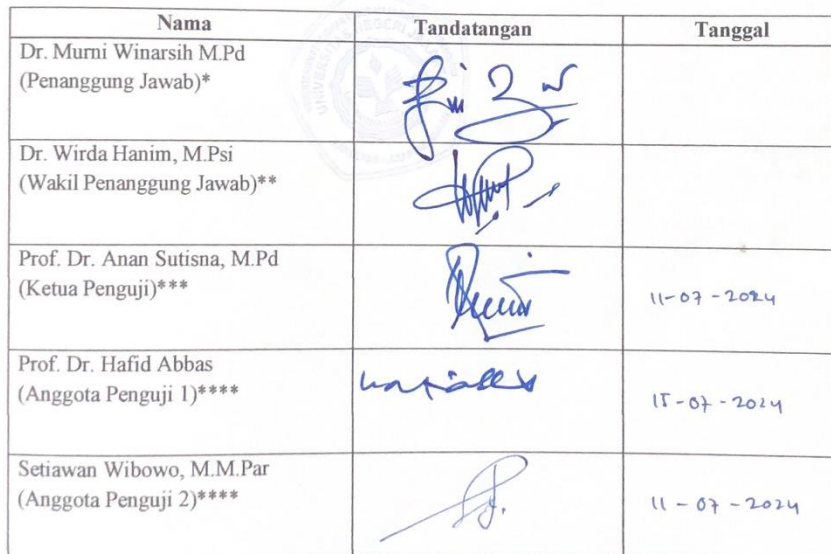 Nama Tandatangan Tanggal
Dr. Murni Winarsih M.Pd
(Penanggung Jawab)*
Dr. Wirda Hanim, M.Psi
(Wakil Penanggung Jawab)**
Prof. Dr. Anan Sutisna, M.Pd
(Ketua Penguji)*** 11-07-2024
Prof. Dr. Hafid Abbas
(Anggota Penguji 1)**** 15-07-2024
Setiawan Wibowo, M.M.Par
(Anggota Penguji 2)**** 11-07-2024